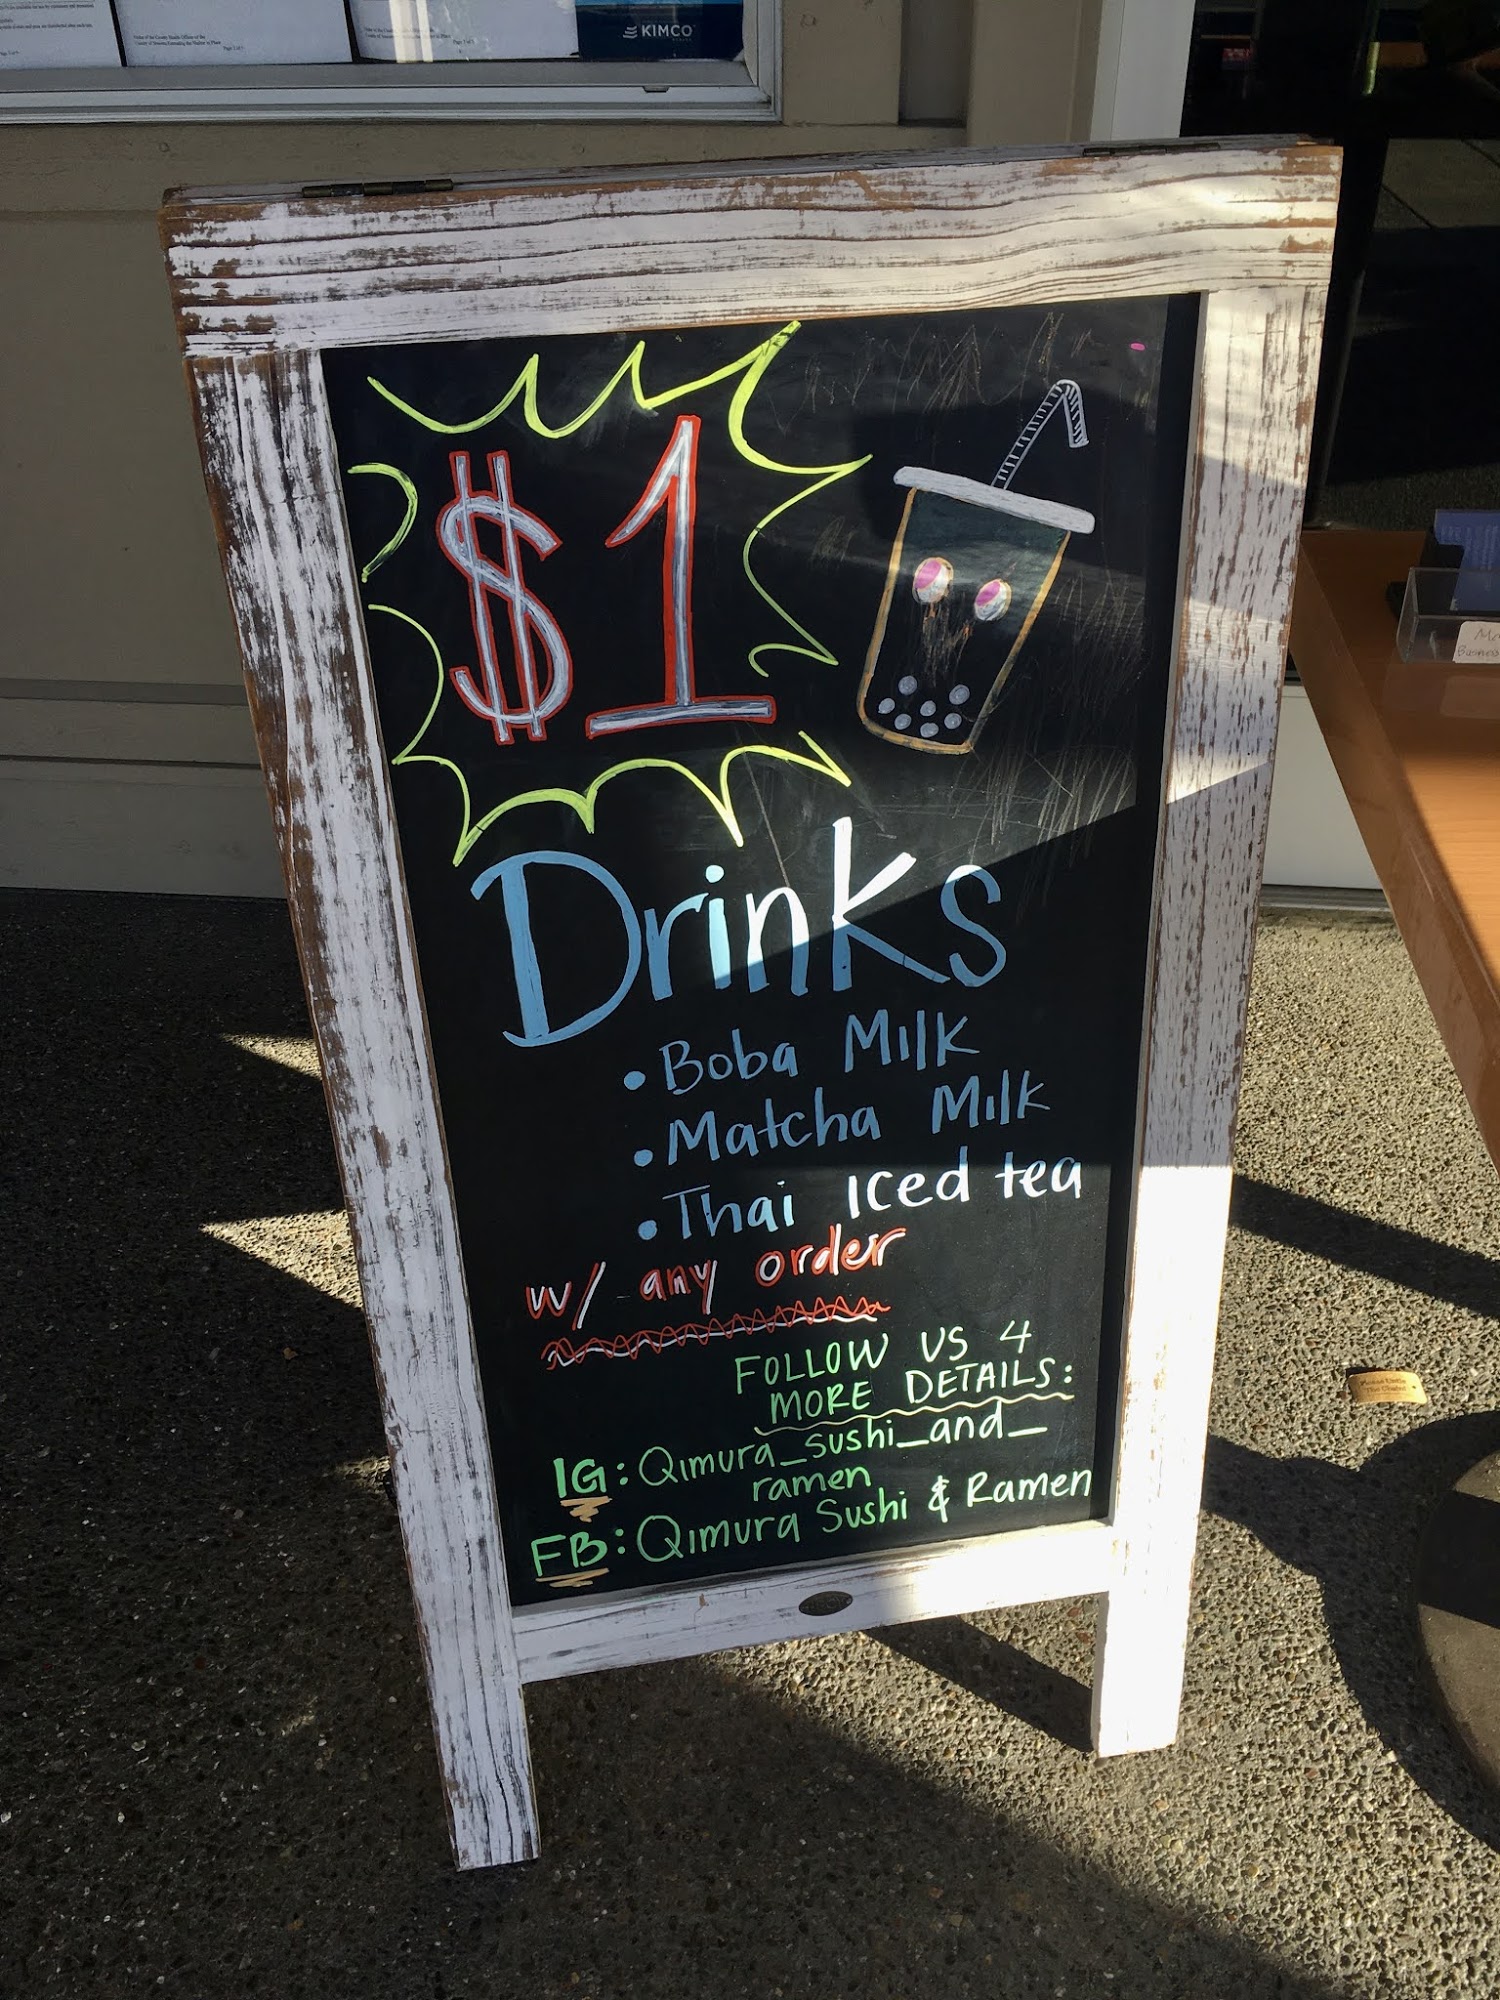 KIMCO
Page 2 of
$1
Drinks
• Boba Milk
• Matcha Milk
• Thai Iced tea
w/ any order
FOLLOW US 4
MORE DETAILS:
IG: Qimura_sushi_and_
ramen
FB: Qimura Sushi & Ramen